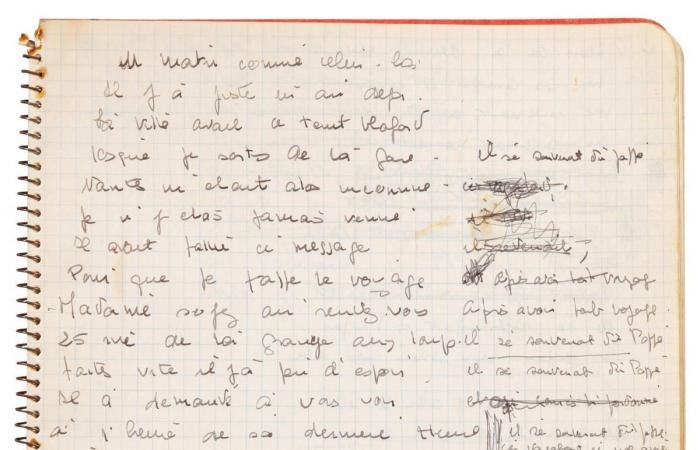 Un matin comme celui-là
Il y a juste un an deja.
la ville avait ce teint blafard
losque je sortis de la gare -
Nantes m'etait alors inconnue -
je n'y etais jamais venue
Il avait fallu ce message
Pour que je fasse le voyage
- Madame soyez au rendez vous
25 rue de la grange aux loup.
faites vite il y a peu d'espoi
Il a demandé a vous voir
a l'heure de sa derniere heure
il se souvenait du passé
il revenait,
après avoir tout voyage
après avoir tout voyage.
il se souvenait du Passé
il se souvenait du Passé
il se souvenait du passé